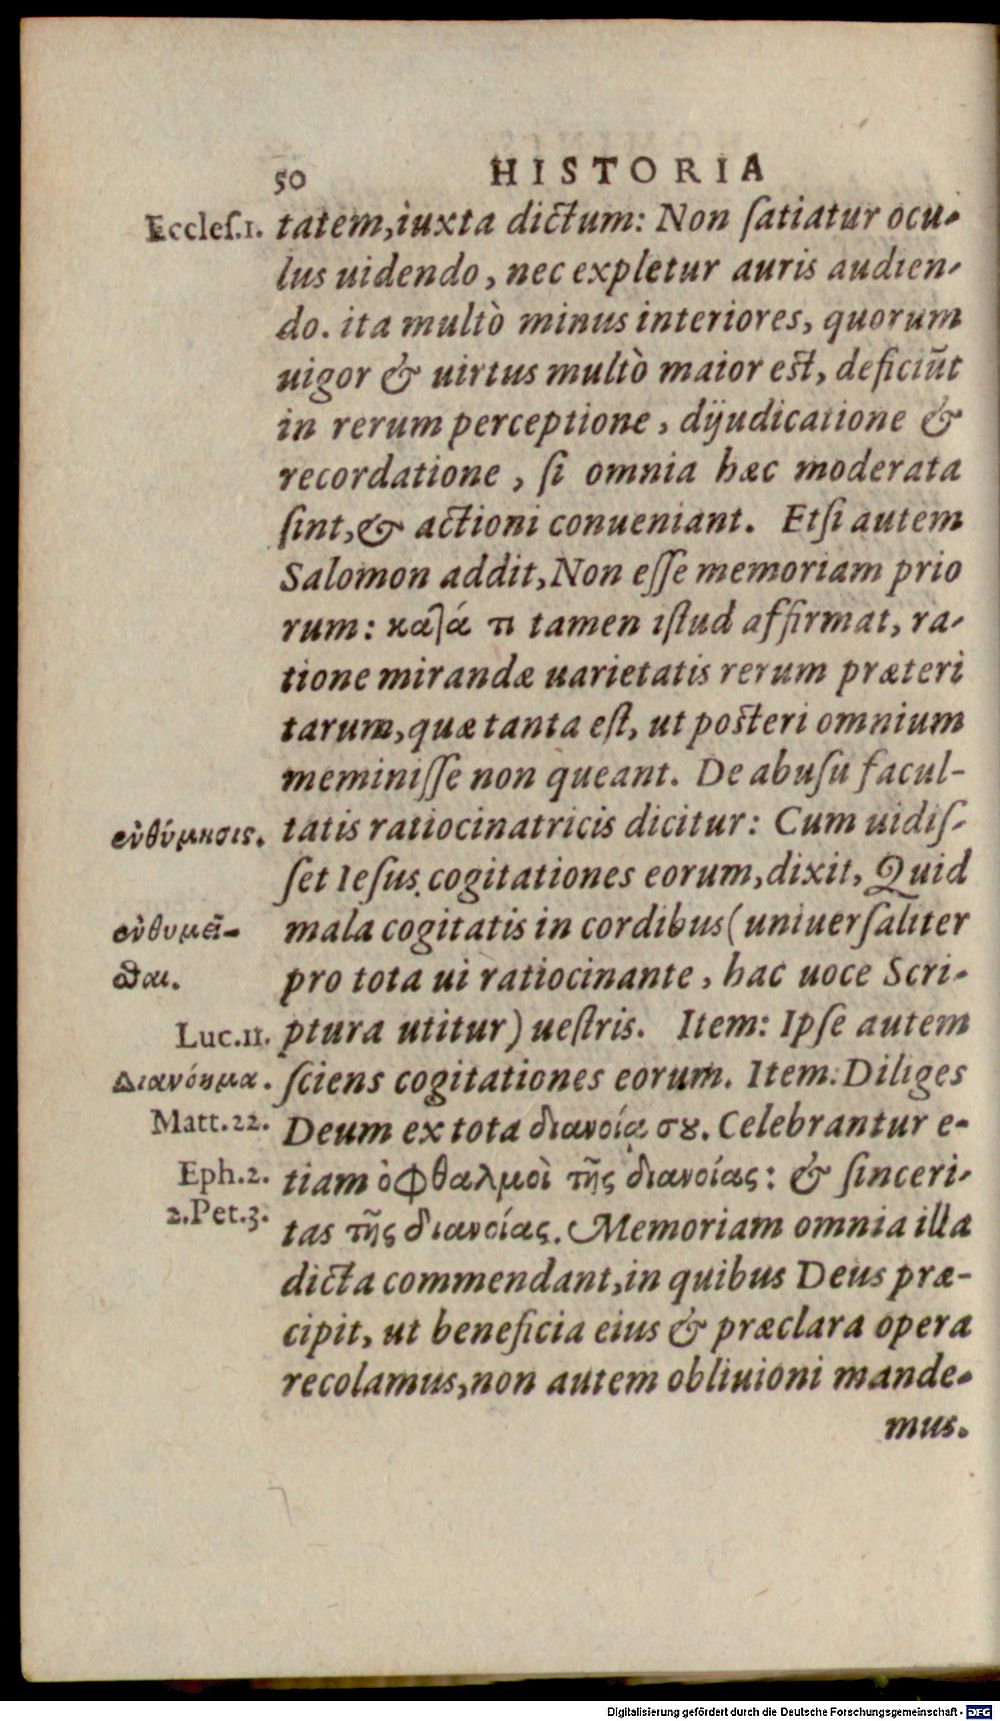 50 HISTORIA
Eccleſ.1. tatem,iuxta dictum: Non ſatiatur ocu-
lus uidendo, nec expletur auris audien-
do. ita multò minus interiores, quorum
uigor & uirtus multò maior est, deficiūt
in rerum perceptione, dijudicatione &
recordatione, ſi omnia hæc moderata
ſint,& actioni conueniant. Etſi autem
Salomon addit,Non eſſe memoriam prio
rum: κατά τι tamen iſtud affirmat, ra-
tione mirandæ uarietatis rerum præteri
tarum,quæ tanta eſt, ut posteri omnium
meminiſſe non queant. De abuſu facul-
ἐνθύμησις. tatis ratiocinatricis dicitur: Cum uidiſ-
ſet Ieſus cogitationes eorum,dixit, Quid
ἐνθυμεῖ- mala cogitatis in cordibus(uniuerſaliter
σθαι. pro tota ui ratiocinante, hac uoce Scri-
Luc.11. ptura utitur) ueſtris. Item: Ipſe autem
Διανόημα. ſciens cogitationes eorum. Item:Diliges
Matt.22. Deum ex tota διανοίᾳ σȣ. Celebrantur e-
Eph.2. tiam ὀφθαλμοὶ τῆς διανοίας: & ſinceri-
2.Pet.3. tas τῆς διανοίας. Memoriam omnia illa
dicta commendant,in quibus Deus præ-
cipit, ut beneficia eius & præclara opera
recolamus,non autem obliuioni mande-
mus.
Digitalisierung gefördert durch die Deutsche Forschungsgemeinschaft - DFG